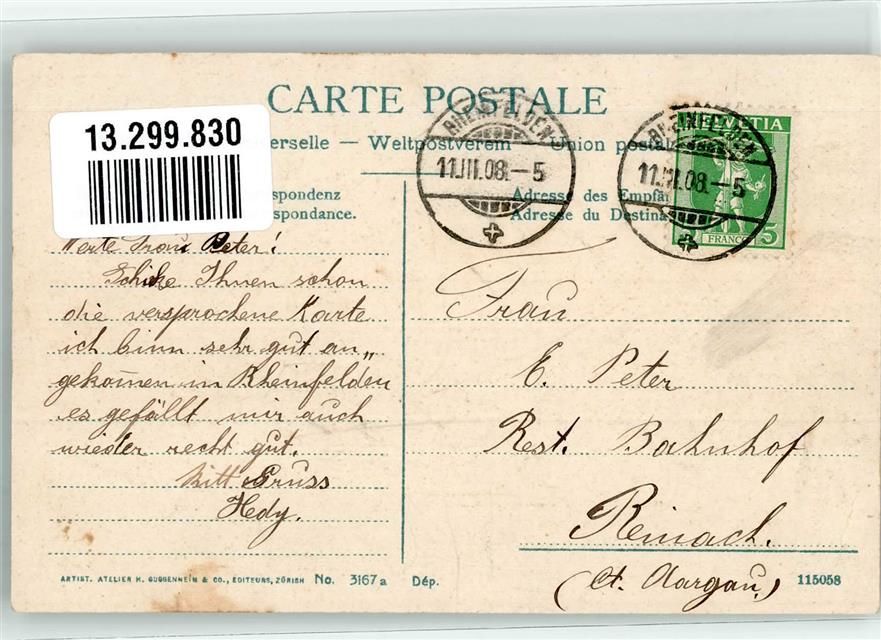 CARTE POSTALE
13.299.830
erselle — Weltpostverein — Union postal
spondenz
spondance.
Adresse des Empfä
Adresse du Destina
RHEINFELDEN
11.III.08.-5
RHEINFELDEN
11.III.08.-5
HELVETIA
FRANCO 5
Werte Frau Peter!
Schicke Ihnen schon
die versprochene Karte
ich binn sehr gut an„
gekommen in Rheinfelden
es gefällt mir auch
wieder recht gut.
Mitt Gruss
Hedy.
Frau
E. Peter
Rest. Bahnhof
Reinach.
(Ct. Aargau.)
ARTIST. ATELIER H. GUGGENHEIM & CO., EDITEURS, ZÜRISH No. 3167a Dép.
115058